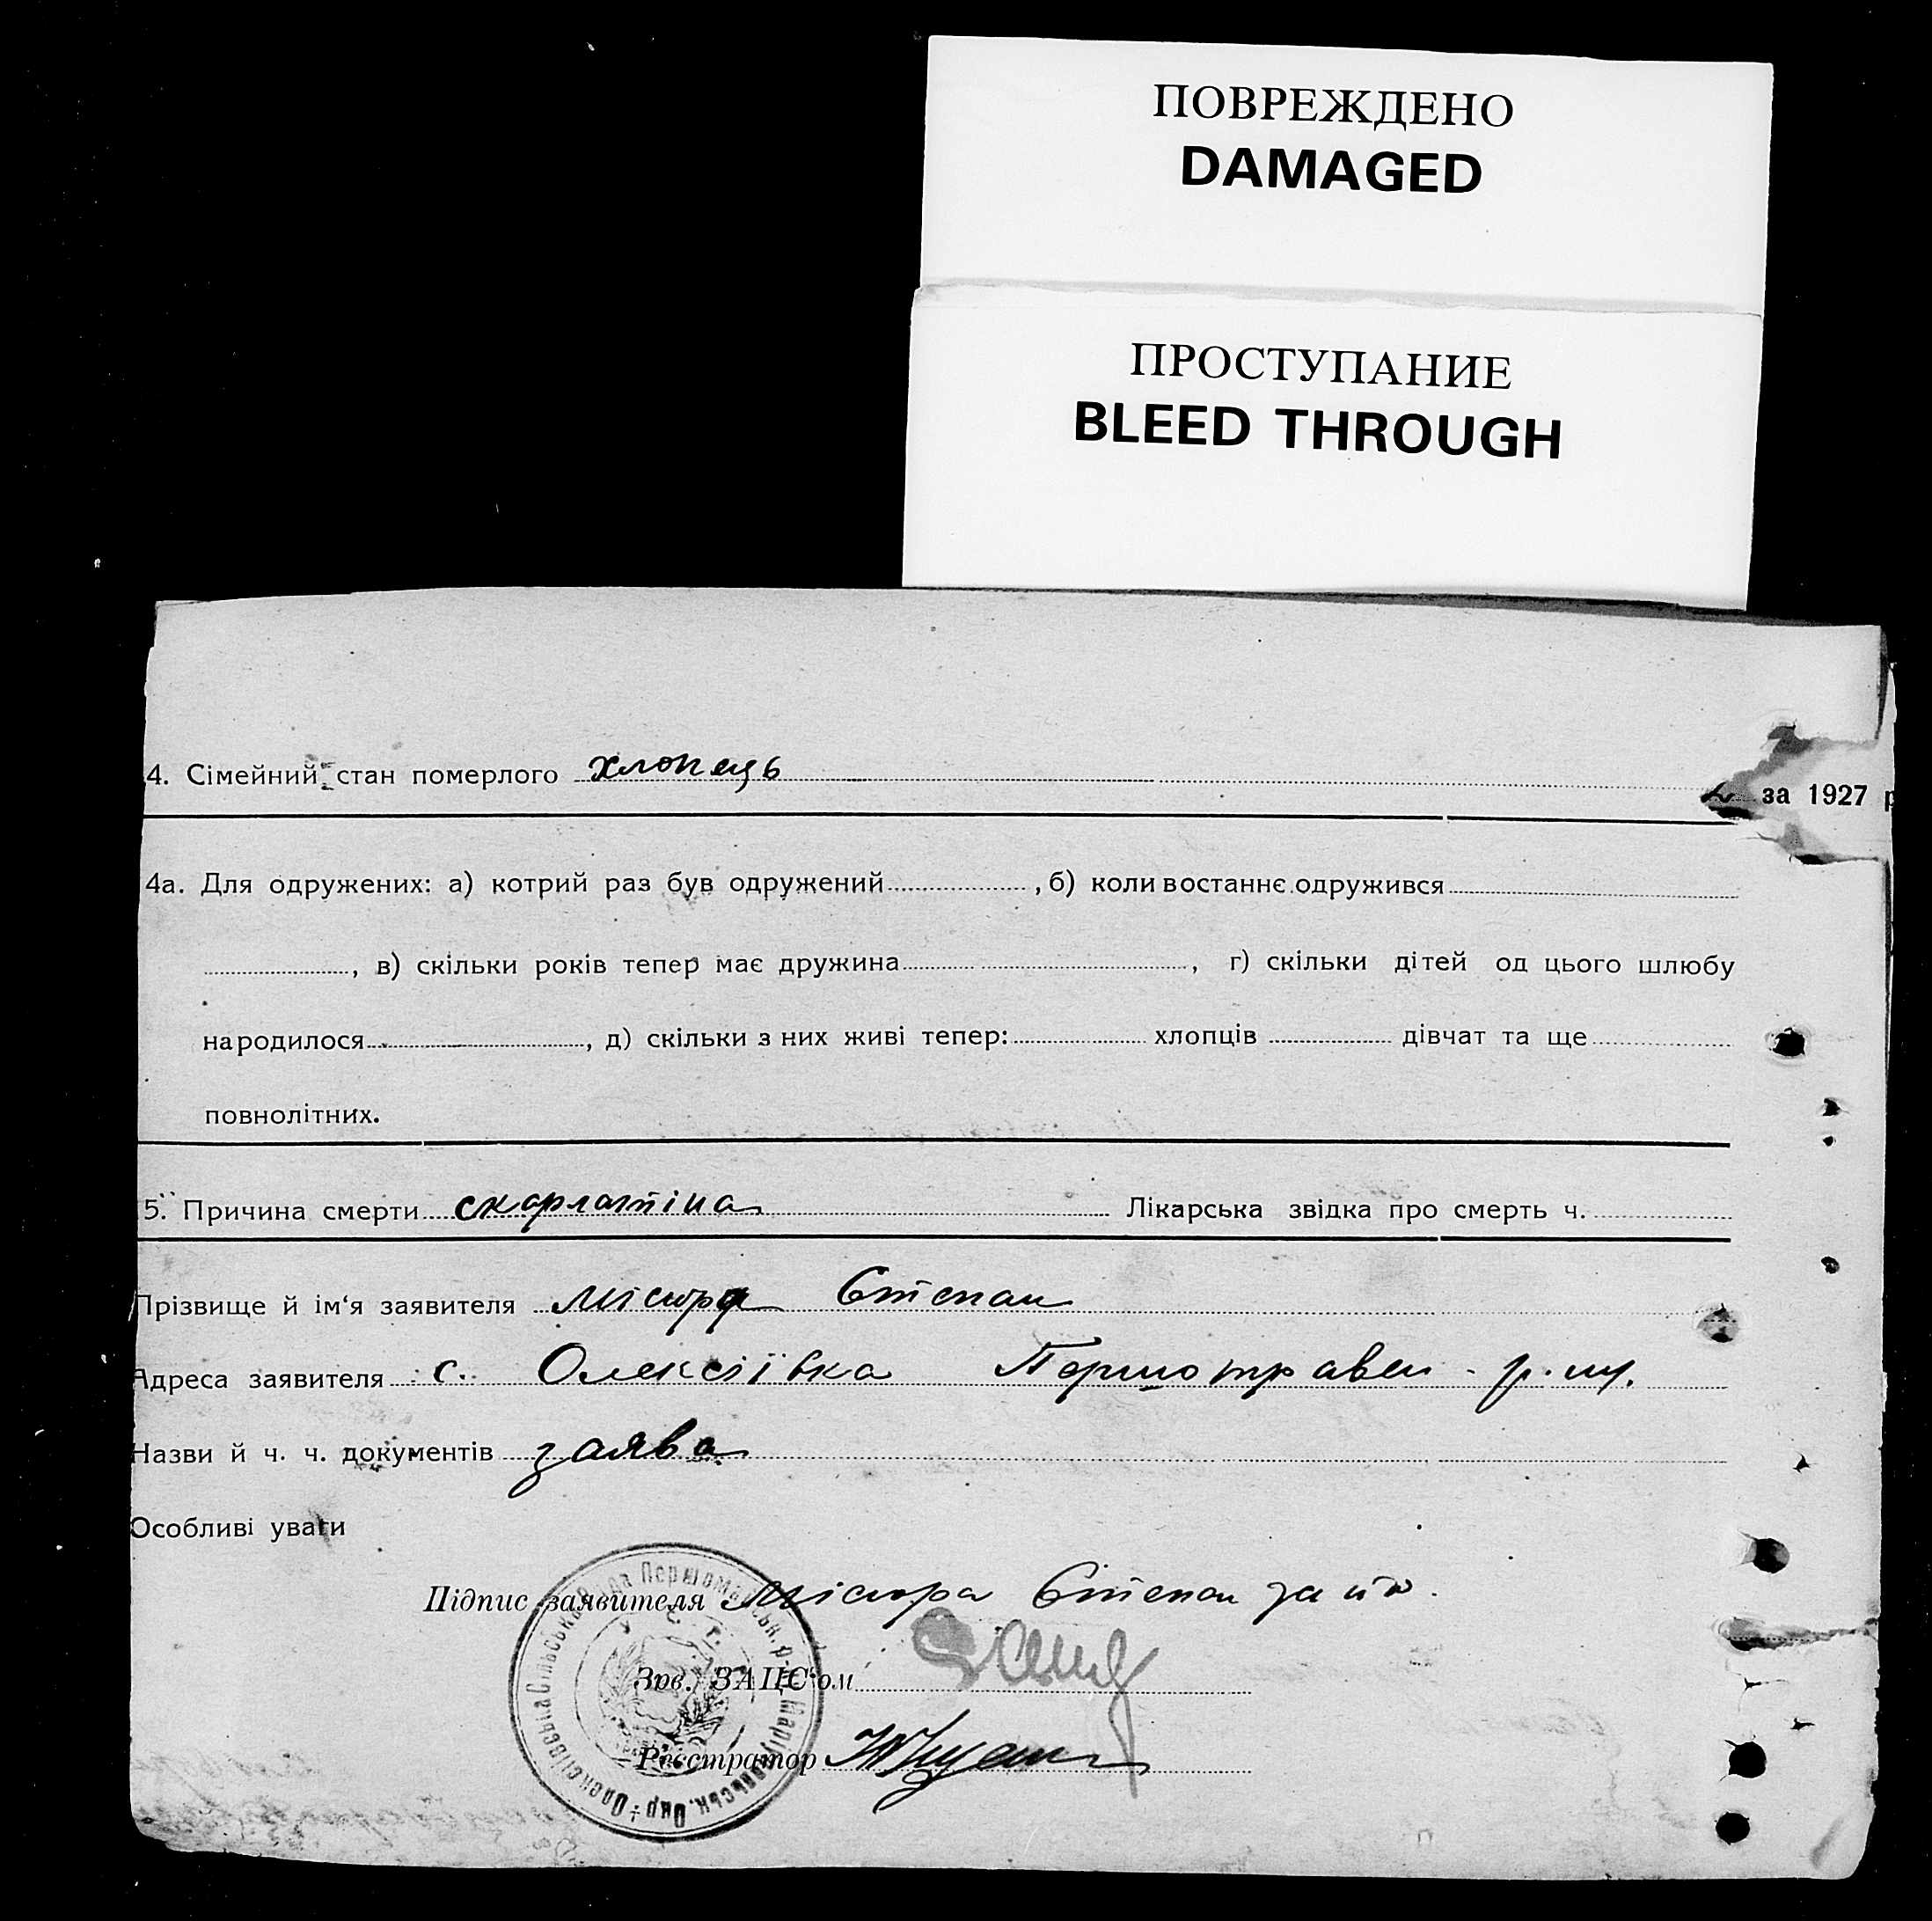 ПОВРЕЖДЕНО
DAMAGED
ПРОСТУПАНИЕ
BLEED THROUGH
4. Сімейний стан померлого хлопець
за 1927 р
4а. Для одружених: а) котрий раз був одружений , б) коли востаннє одружився
, в) скільки років тепер має дружина , г) скільки дітей од цього шлюбу
народилося , д) скільки з них живі тепер: хлопців дівчат та ще
повнолітних.
5. Причина смерти скарлатіна Лікарська звідка про смерть ч.
Прізвище й ім'я заявителя Місюра Степан
Адреса заявителя с. Олексіївка Першотравен - р.
Назви й ч. ч. документів заява
Особливі уваги
Підпис заявителя Місюра Степан за
Зав. ЗАЦС'ом
Реєстратор
Олексіївська Сільська Рада Першомайськ. р-н Маріупольськ. Окр.